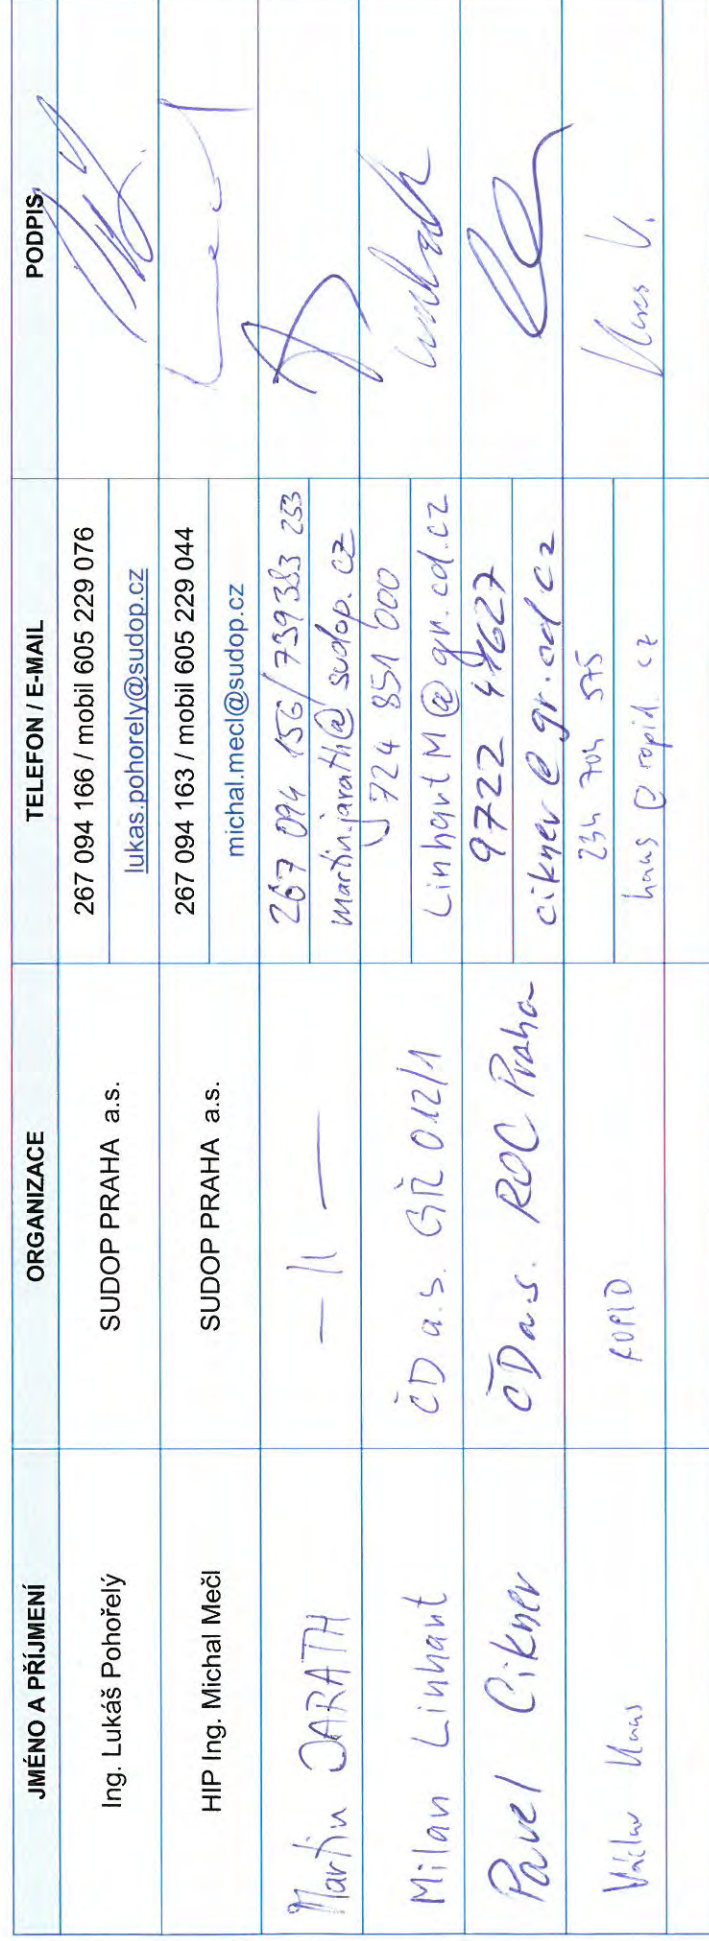 JMÉNO A PŘÍJMENÍ ORGANIZACE TELEFON / E-MAIL PODPIS
Ing. Lukáš Pohořelý SUDOP PRAHA a.s. 267 094 166 / mobil 605 229 076
lukas.pohorely@sudop.cz
HIP Ing. Michal Mečl SUDOP PRAHA a.s. 267 094 163 / mobil 605 229 044
michal.mecl@sudop.cz
Martin JARATH — 11 — 267 094 156/739383 253
martin.jarath@sudop.cz
Milan Linhart ČD a.s. GŘ 012/1 724 851 000
LinhartM@gr.cd.cz
Pavel Cikner ČD a.s. ROC Praha 9722
cikner@gr.cd.cz
Václav Haas ROPID 234 704 575
haas@ropid.cz